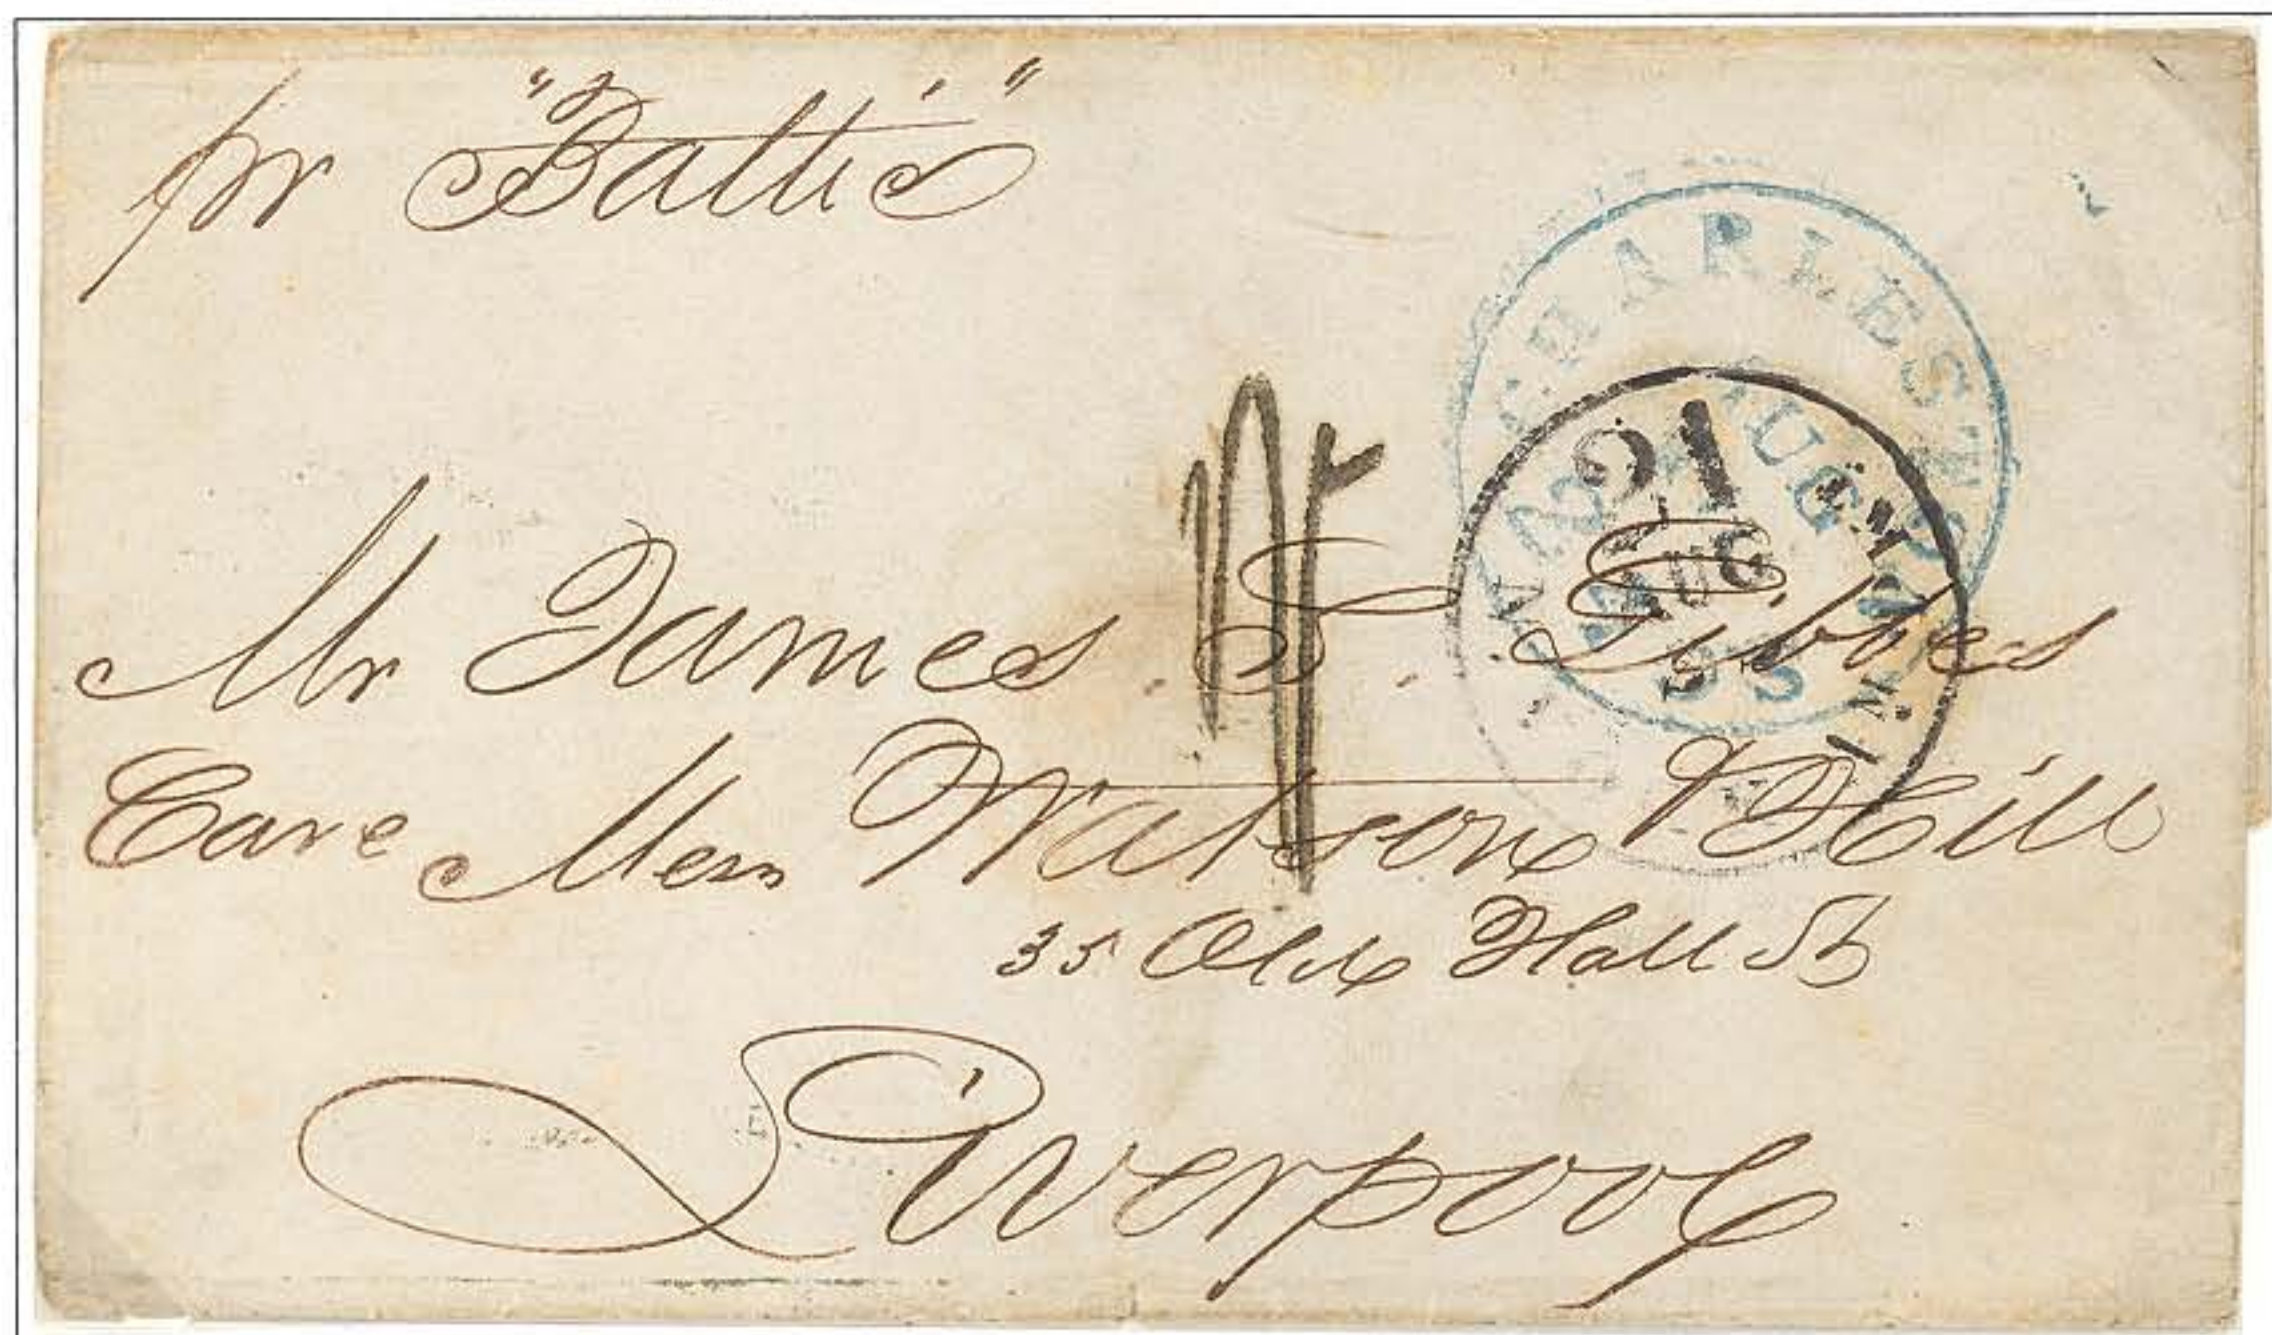 pr "Baltic"
CHARLESTON
AUG
21
AUG
Mr James S. Gibbes
Care Mess Watson & Hill
35 Old Hall St
Liverpool